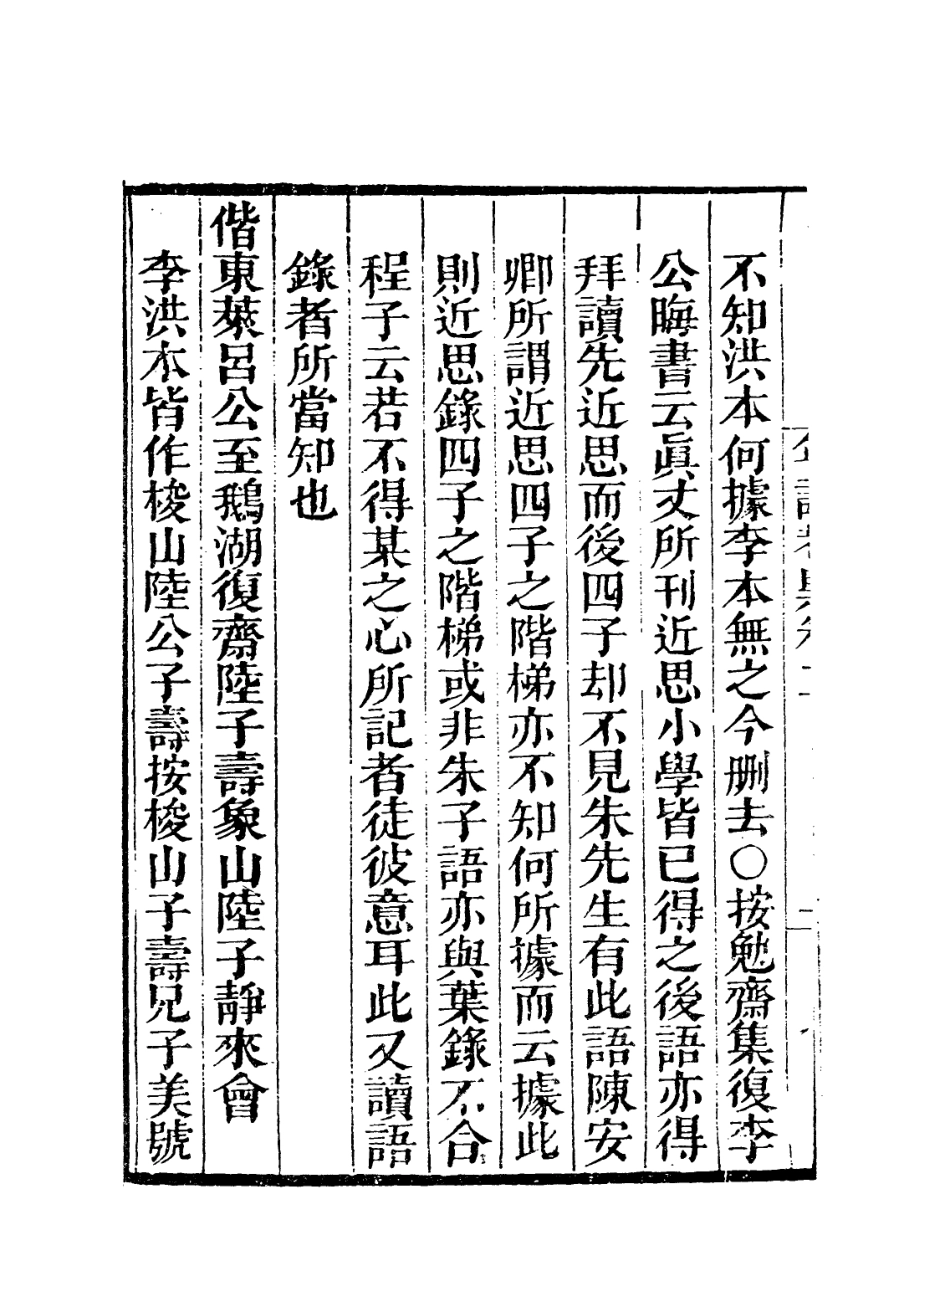 不知洪本何據李本無之今刪去○按勉齋集復李
公晦書云眞丈所刊近思小學皆已得之後語亦得
拜讀先近思而後四子却不見朱先生有此語陳安
卿所謂近思四子之階梯亦不知何所據而云據此
則近思錄四子之階梯或非朱子語亦與葉錄不合
程子云若不得某之心所記者徒彼意耳此又讀語
錄者所當知也
偕東萊呂公至鵝湖復齋陸子壽象山陸子靜來會
李洪本皆作梭山陸公子壽按梭山子壽兄子美號